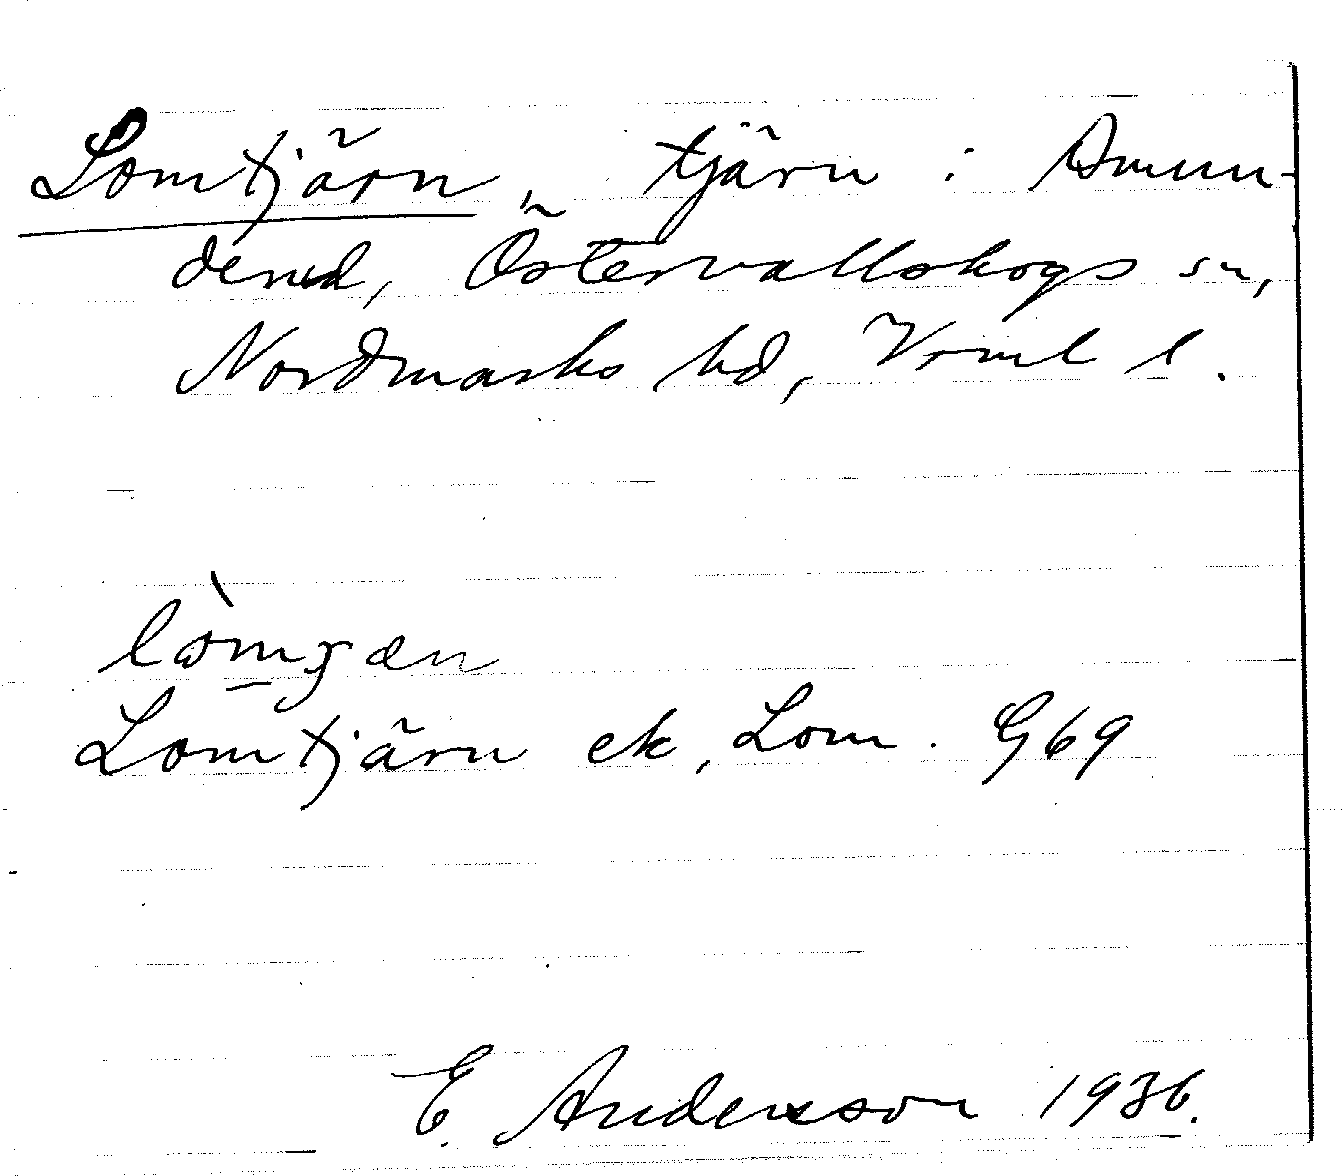 Lomtjärn, tjärn i Amun-
denud, Östervallskogs sn,
Nordmarks hd, Vrml l.
Lomtjärn ek, Lom. G69
E. Andersson 1936.